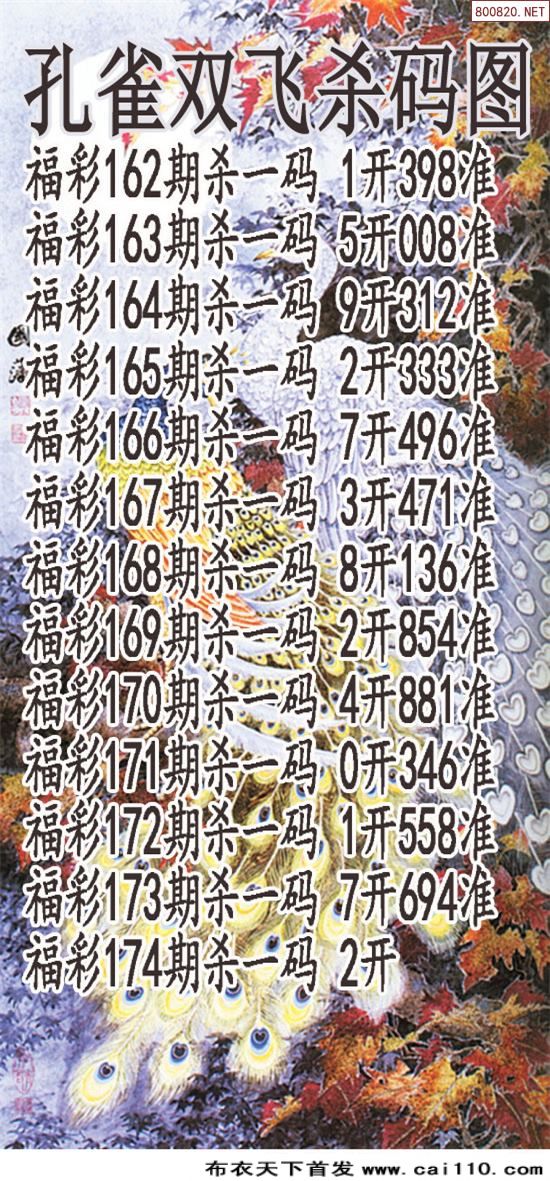 800820.NET
孔雀双飞杀码图
福彩162期杀一码 1开398准
福彩163期杀一码 5开008准
福彩164期杀一码 9开312准
福彩165期杀一码 2开333准
福彩166期杀一码 7开496准
福彩167期杀一码 3开471准
福彩168期杀一码 8开136准
福彩169期杀一码 2开854准
福彩170期杀一码 4开881准
福彩171期杀一码 0开346准
福彩172期杀一码 1开558准
福彩173期杀一码 7开694准
福彩174期杀一码 2开
布衣天下首发 www.cai110.com